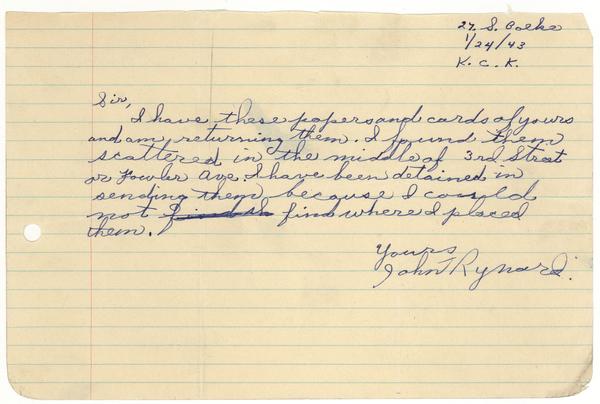 27 S. Boeke
1/24/43
K. C. K.
Sir,
I have these papers and cards of yours
and am returning them. I found them
scattered in the middle of 3rd Street
or Fowler Ave. I have been detained in
sending them because I could
not find where I placed
them.
Yours
John Rynard